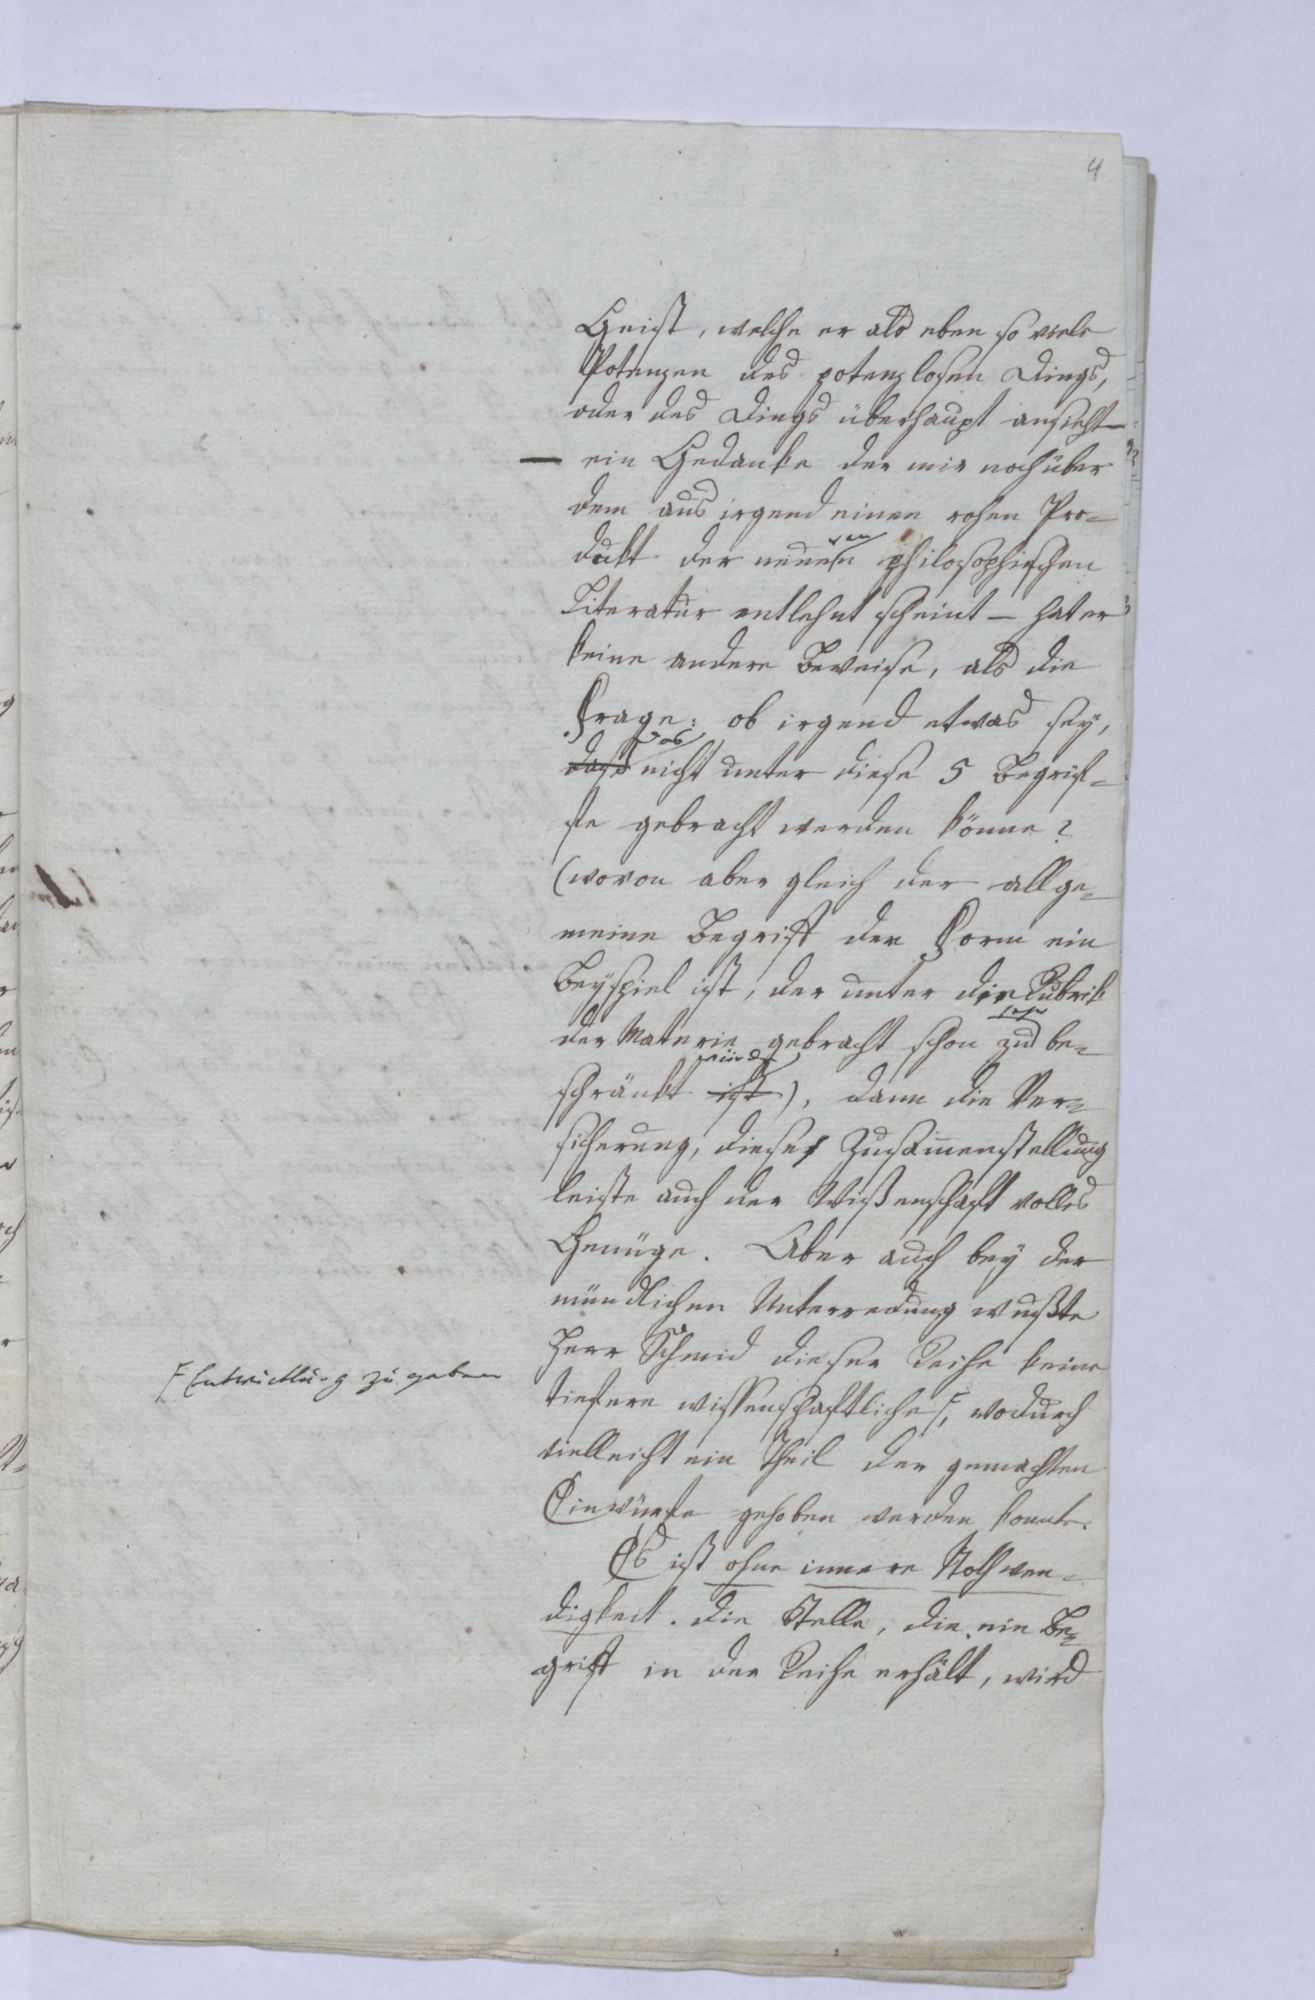 4
Geist, welche er als eben so viele
Potenzen des potenzlosen Dings,
oder des Dings überhaupt ansieht —
— ein Gedanke der mir noch über
dem aus irgend einem rohen Pro-
dukt der neuen philosophischen
Literatur entlehnt scheint — hat er
keine andere Beweise, als die
Frage: ob irgend etwas sey,
was
dass nicht unter diese 5 Begrif-
fe gebracht werden könne?
(wovon aber gleich der allge-
meine Begriff der Form ein
Beyspiel ist, der unter die Rubrik
sehr
der Materie gebracht schon zu be-
würde
schränkt ist), dann die Ver-
sicherung, diese Zusammenstellung
leiste auch der Wißenschaft volles
Genüge. Aber auch bey der
mündlichen Unterredung wußte
Herr Schmid dieser Reihe keine
F Entwicklung zu geben
tiefere wissenschaftliche F, wodurch
vielleicht ein Theil der gemachten
Einwürfe gehoben werden konnte.
Es ist ohne innere Nothwen-
digkeit. Die Stelle, die ein Be-
griff in der Reihe erhält, wird